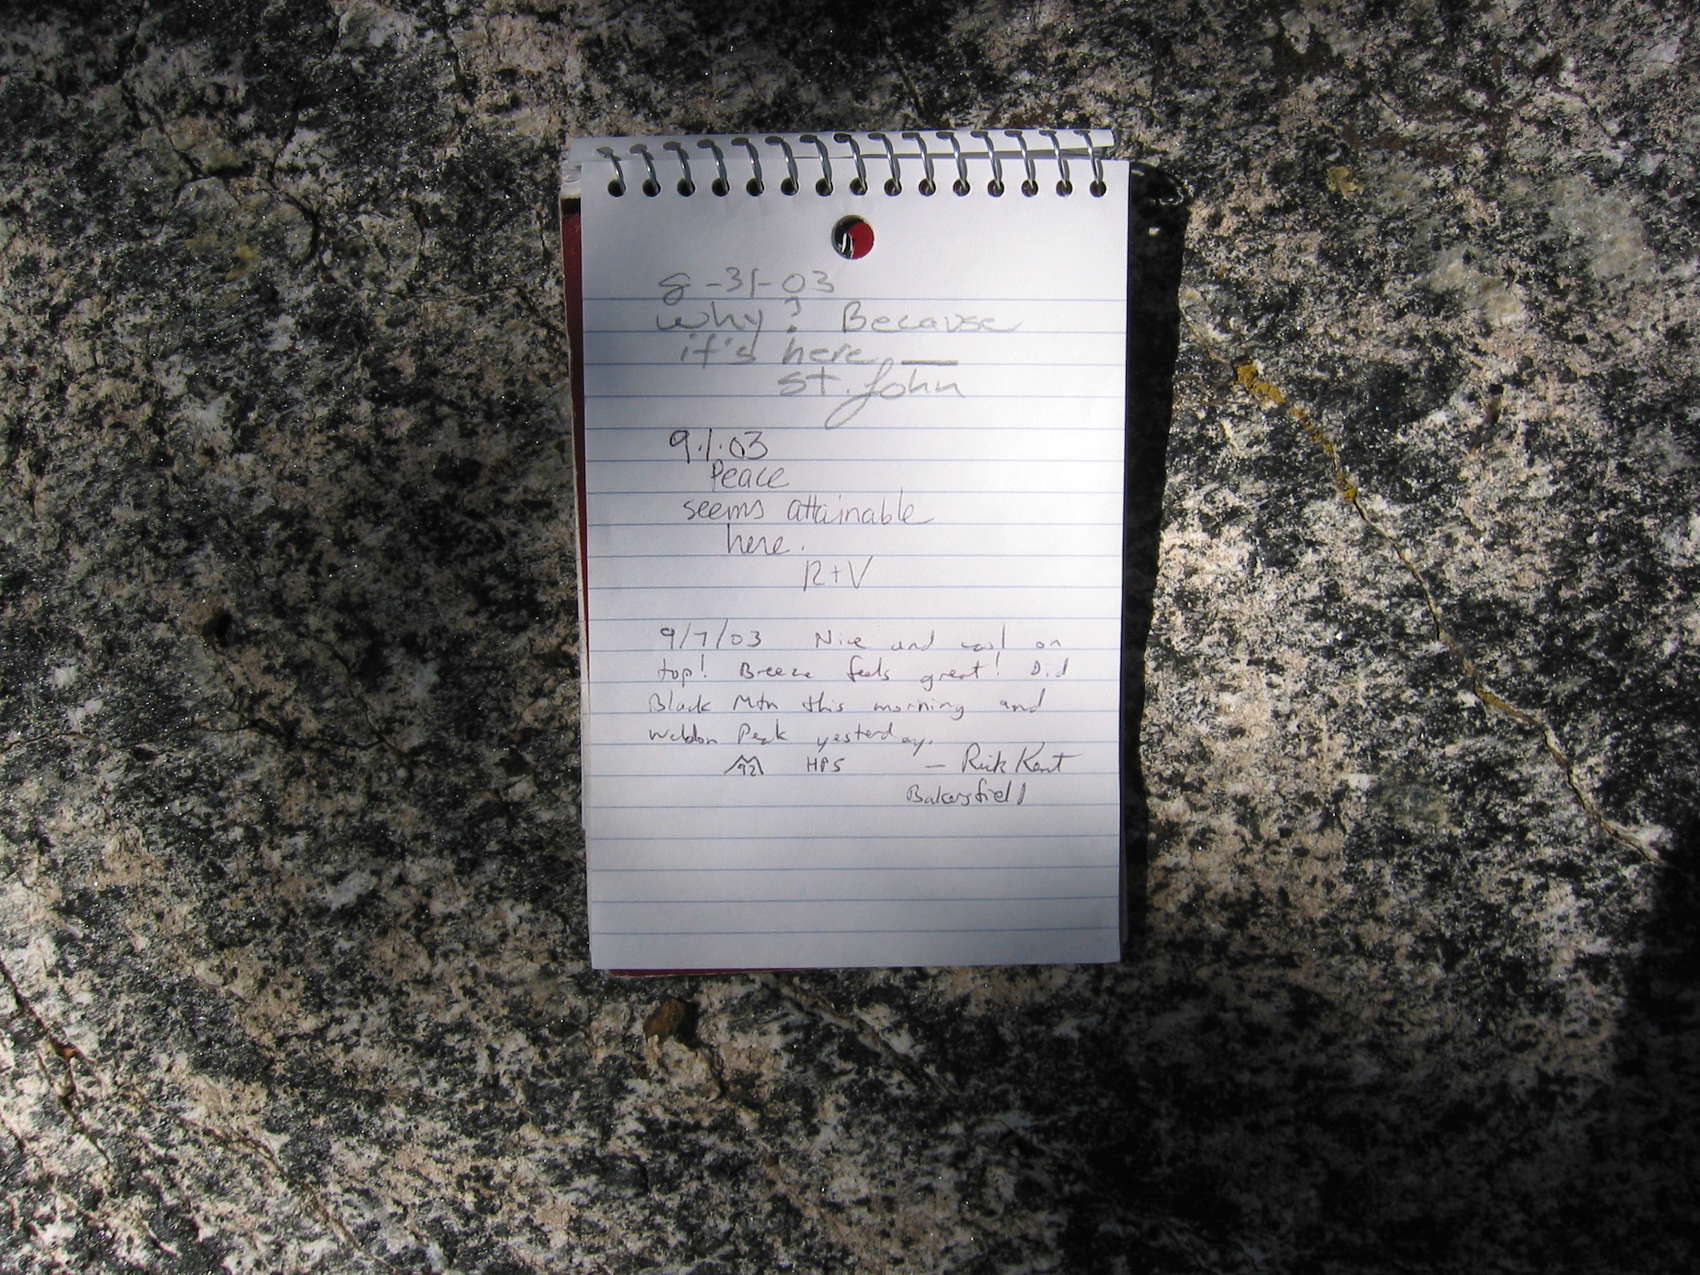 8-31-03
why? Because
it's here. —
St. John
9.1.03
Peace
seems attainable
here.
R+V
9/7/03 Nice and cool on
top! Breeze feels great! Did
Black Mtn this morning and
Weldon Peak yesterday.
92 HPS — Rick Kent
Bakersfield